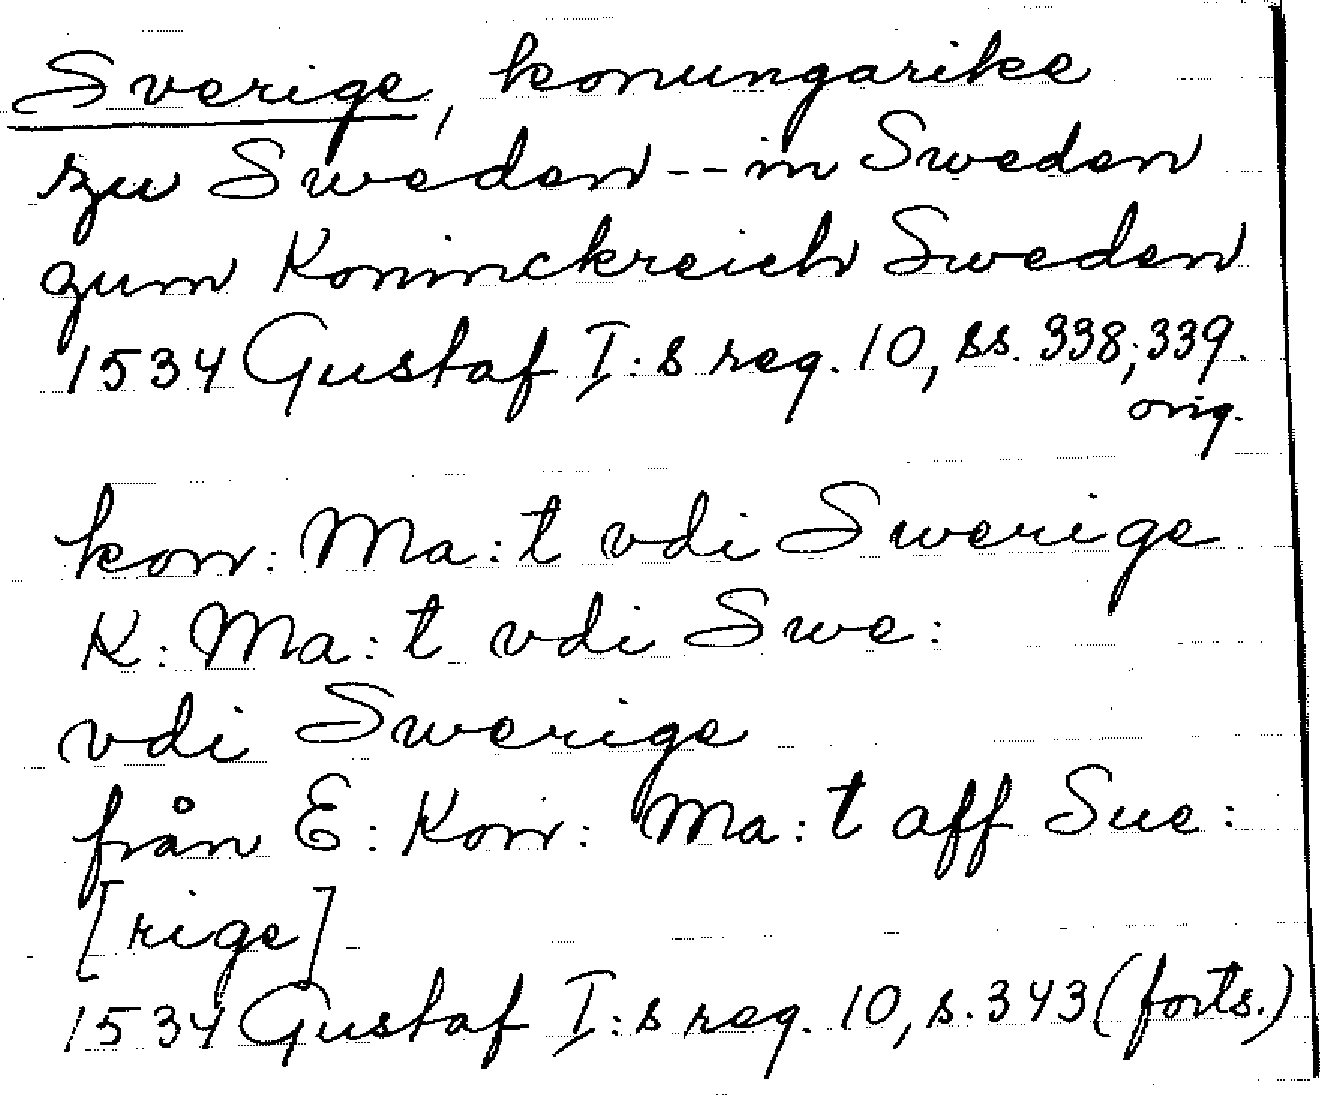 Sverige, konungarike
zu Sweden -- in Sweden
zum Koninckreich Sweden
1534 Gustaf I:s reg. 10, ss. 338; 339.
orig.
kon: Ma:t vdi Swerige
K: Ma:t vdi Swe:
vdi Swerige
från E: Kon: Ma:t aff Sue:
[rige]
1534 Gustaf I:s reg. 10, s. 343 (forts.)